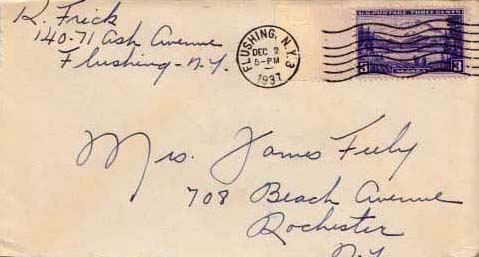 R. Frick
140-71 Ash Avenue
Flushing - N.Y.
FLUSHING, N.Y. 3
DEC 2
5-PM
1937
U.S. POSTAGE THREE CENTS
3 ALASKA 3
Mrs. James Feely
708 Beach Avenue
Rochester
N.Y.